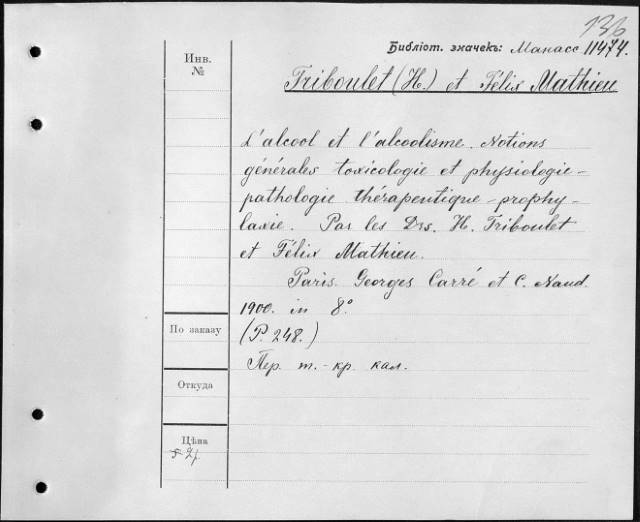 136
Библіот. значекъ: Манасс 11474.
Инв.
№
Triboulet (H.) et Félix Mathieu
L'alcool et l'alcoolisme. Notions
générales toxicologie et physiologie-
pathologie thérapeutique-prophy-
laxie. Par les Drs. H. Triboulet
et Félix Mathieu.
Paris. Georges Carré et C. Naud.
1900. in 8°.
По заказу
(P. 248.)
Пер. т.-кр. кал.
Откуда
Цѣна